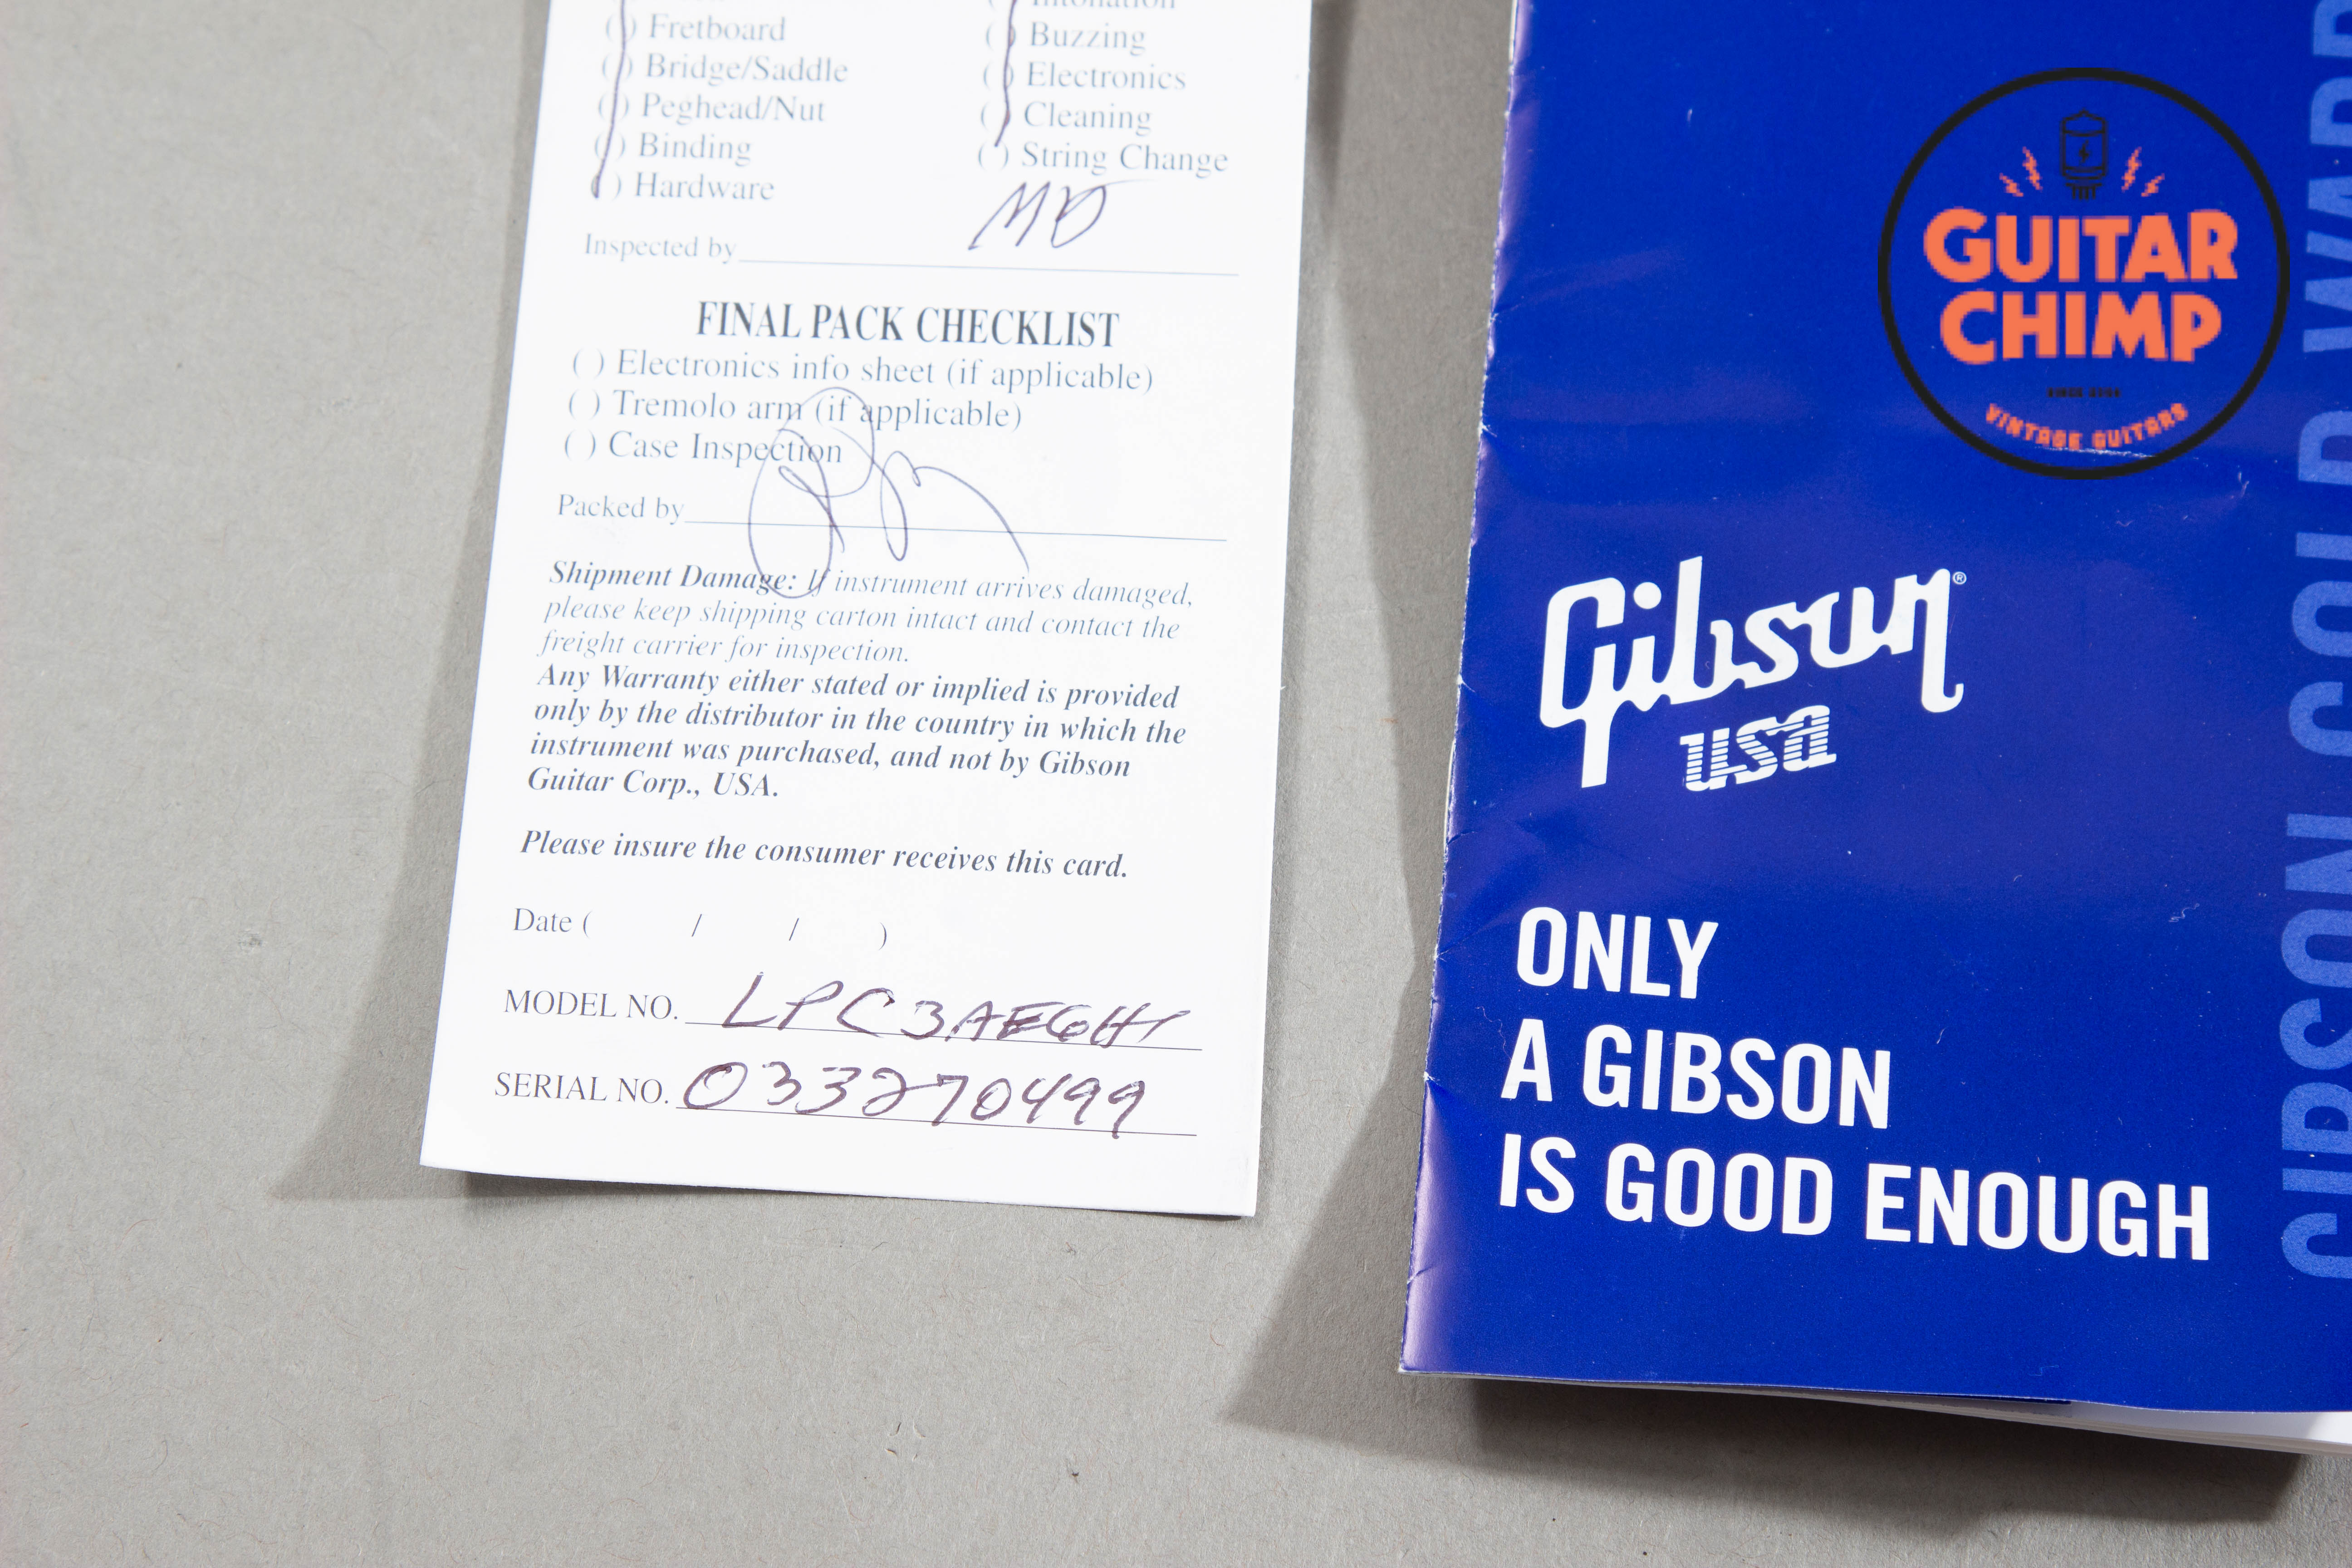 ( ) Fretboard
( ) Bridge/Saddle
( ) Peghead/Nut
( ) Binding
( ) Hardware
Intonation
( ) Buzzing
( ) Electronics
( ) Cleaning
( ) String Change
Inspected by MD
FINAL PACK CHECKLIST
( ) Electronics info sheet (if applicable)
( ) Tremolo arm (if applicable)
( ) Case Inspection
Packed by
Shipment Damage: If instrument arrives damaged,
please keep shipping carton intact and contact the
freight carrier for inspection.
Any Warranty either stated or implied is provided
only by the distributor in the country in which the
instrument was purchased, and not by Gibson
Guitar Corp., USA.
Please insure the consumer receives this card.
Date ( / / )
MODEL NO. LPC3AEGH1
SERIAL NO. 033270499
GUITAR
CHIMP
VINTAGE GUITARS
Gibson®
USA
ONLY
A GIBSON
IS GOOD ENOUGH
GIBSON GOLD WARR